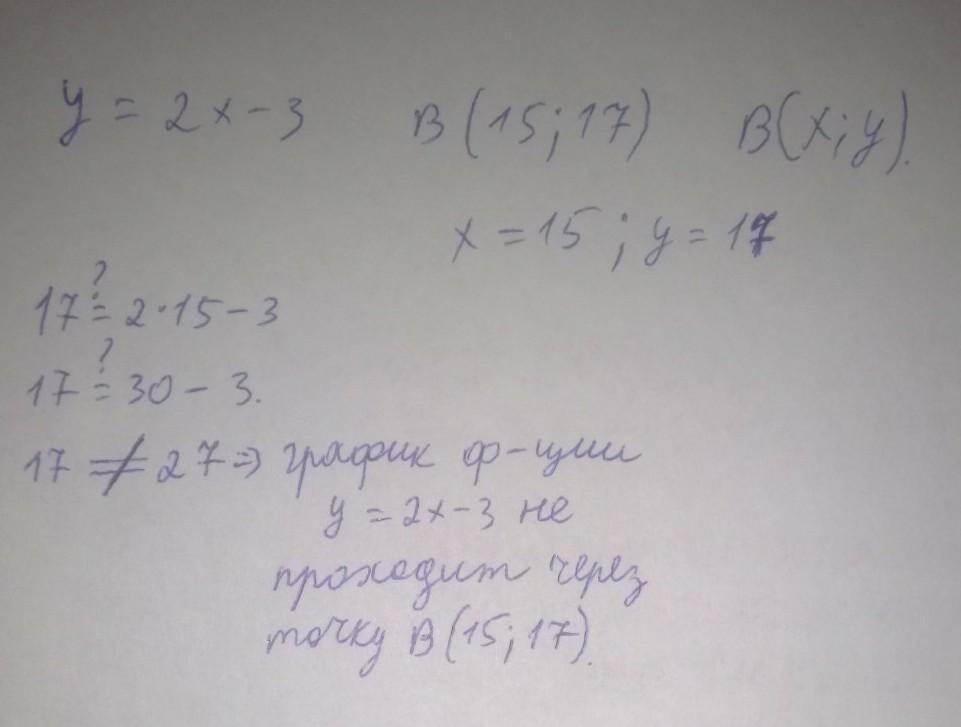 y = 2x - 3 B(15; 17) B(x; y).
x = 15 ; y = 17
17 ?= 2·15 - 3
17 ?= 30 - 3.
17 ≠ 27 ⇒ график ф-ции
y = 2x - 3 не
проходит через
точку B(15; 17).